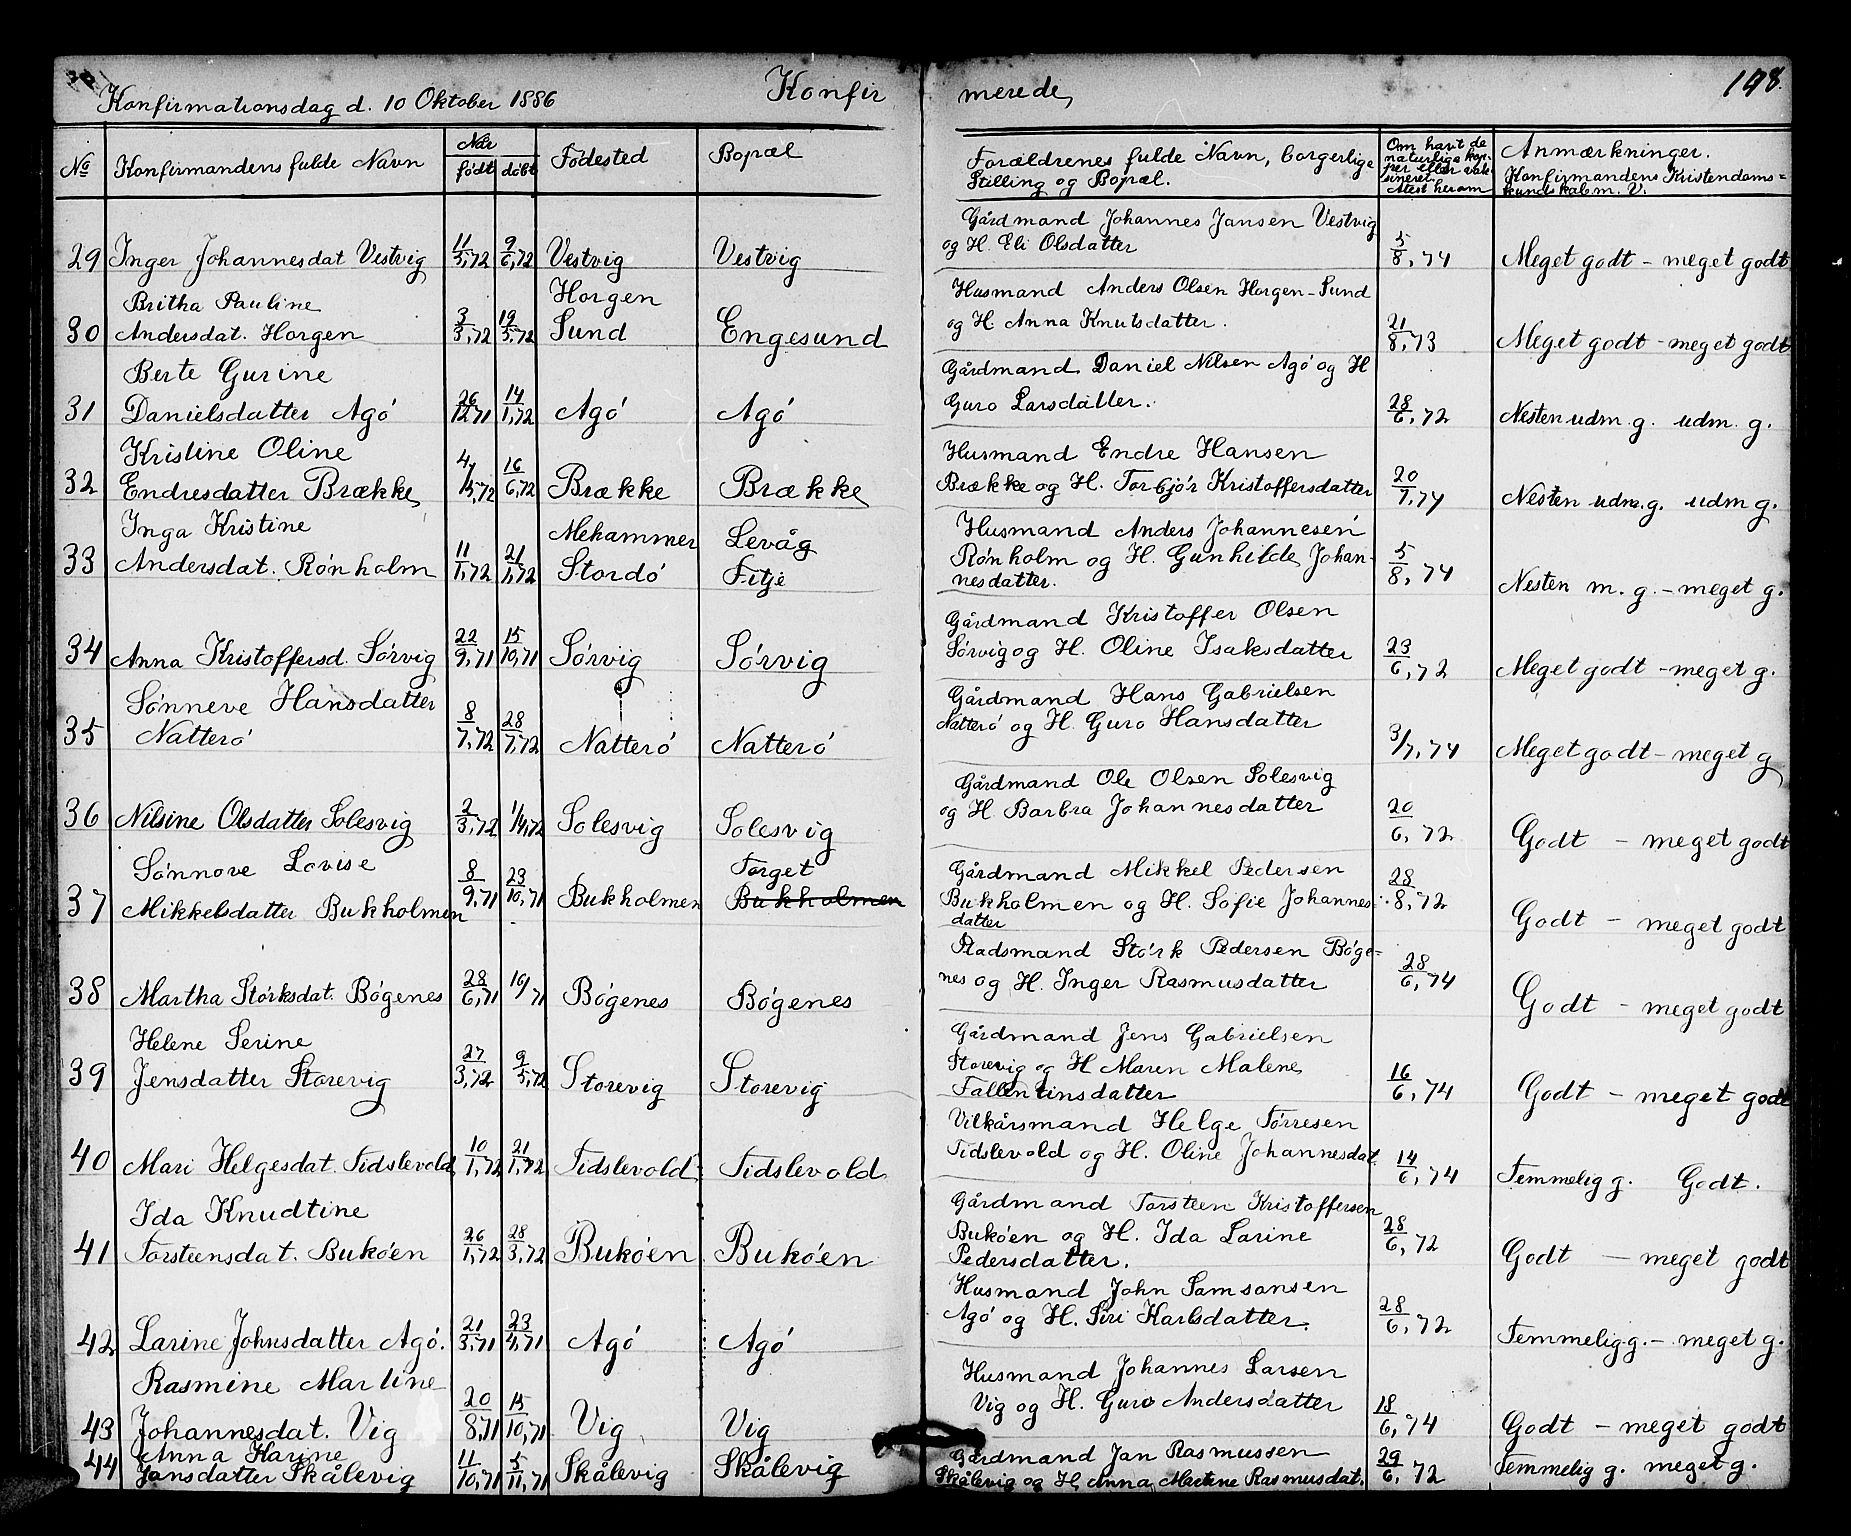 Konfirmationsdag d. 10 Oktober 1886
Konfir merede,
148.
No
Konfirmandens fulde Navn
Når
født
døbt
Fødested
Bopæl
Forældrenes fulde Navn, borgerlige
Stilling og Bopæl.
Om havt de
naturlige kop-
per eller vak-
sineret
Attest herom
Anmærkninger.
Konfirmandens Kristendoms=
kundskab m. V.
Gårdmand Johannes Jansen Vestvig
29 Inger Johannesdat Vestvig 11/3,72 9/6,72 Vestvig Vestvig og H. Eli Olsdatter 5/8,74 Meget godt - meget godt
Britha Pauline Horgen Husmand Anders Olsen Horgen-Sund
30 Andersdat. Horgen 3/3,72 19/5,72 Sund Engesund og H Anna Knutsdatter. 21/8,73 Meget godt - meget godt
Berte Gurine Gårdmand Daniel Nilsen Agó og H
31 Danielsdatter Agó 26/12 71 14/1,72 Agó Agó Guro Larsdatter. 28/6,72 Nesten udm. g. udm. g.
Kristine Oline Husmand Endre Hansen
32 Endresdatter Brække 4/5,72 16/6,72 Brække Brække Brække og H. Torbjór Kristoffersdatter 20/7,74 Nesten udm. g. udm g.
Inga Kristine Mehammer Levåg Husmand Anders Johannesen
33 Andersdat. Rónholm 11/1,72 21/1,72 Stordó Fitje Rónholm og H. Gunhilde Johan-
nesdatter. 5/8,74 Nesten m. g. - meget g.
Gårdmand Kristoffer Olsen
34 Anna Kristoffersd. Sórvig 22/9,71 15/10,71 Sórvig Sórvig Sórvig og H. Oline Isaksdatter 23/6,72 Meget godt - meget g.
Sónneve Hansdatter Gårdmand Hans Gabrielsen
35 Natteró 8/7,72 28/7,72 Natteró Natteró Natteró og H. Guro Hansdatter 3/7,74 Meget godt - meget g
Gårdmand Ole Olsen Solesvig
36 Nilsine Olsdatter Solesvig 2/3,72 1/4,72 Solesvig Solesvig og H Barbra Johannesdatter 20/6,72 Godt - meget godt
Sónnove Lovise Torget Gårdmand Mikkel Pedersen
37 Mikkelsdatter Bukholmen 8/9,71 23/10,71 Bukholmen Bukholmen Bukholmen og H. Sofie Johannes-
datter 28/8,72 Godt - meget godt
Pladsmand Stórk Pedersen Bóge-
38 Martha Stórksdat. Bógenes 28/6,71 19/71 Bógenes Bógenes nes og H. Inger Rasmusdatter 28/6,74 Godt - meget godt
Helene Serine Gårdmand Jens Gabrielsen
39 Jensdatter Storevig 27/3,72 9/5,72 Storevig Storevig Storevig og H Maren Malene
Fallentinsdatter 16/6,74 Godt - meget godt
Vilkårsmand Helge Tórresen
40 Mari Helgesdat. Tidslevold 10/1,72 21/1,72 Tidslevold Tidslevold Tidslevold og H. Oline Johannesdat. 14/6,74 Temmelig g. Godt.
Ida Knudtine Gårdmand Torsteen Kristoffersen
41 Torsteensdat. Bukóen 26/1,72 28/3,72 Bukóen Bukóen Bukóen og H. Ida Larine
Pedersdatter. 28/6,72 Godt - meget godt
Husmand John Samsonsen
42 Larine Johnsdatter Agó. 21/3,71 23/4,71 Agó Agó Agó og H. Siri Karlsdatter. 28/6,72 Temmelig g. - meget g.
Rasmine Martine Husmand Johannes Larsen
43 Johannesdat. Vig 20/8,71 15/10,71 Vig Vig Vig og H. Guro Andersdatter 18/6,74 Godt - meget godt
Anna Karine Gårdmand Jan Rasmussen
44 Jansdatter Skålevig 11/10,71 5/11,71 Skålevig Skålevig Skålevig og H. Anna Martene Rasmusdat. 29/6,72 Temmelig g. meget g.